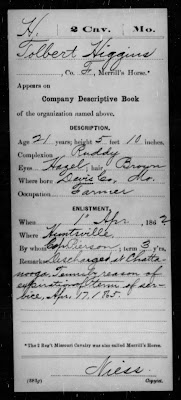 H. 2 Cav. Mo.
Tolbert Higgins
, Co. F, Merrill's Horse.*
Appears on
Company Descriptive Book
of the organization named above.
DESCRIPTION.
Age 21 years; height 5 feet 10 inches.
Complexion Ruddy
Eyes Hazel; hair Brown
Where born Lewis Co, Mo.
Occupation Farmer
ENLISTMENT.
When 1" Apr, 1862
Where Huntsville
By whom Cap Pierson; term 3 y'rs.
Remarks: Discharged at Chatta-
nooga, Tenn by reason of
expiration of term of ser-
vice, Apr. 17, 1865.
*The 2 Reg't Missouri Cavalry was also called Merrill's Horse.
Niess
(383g) Copyist.